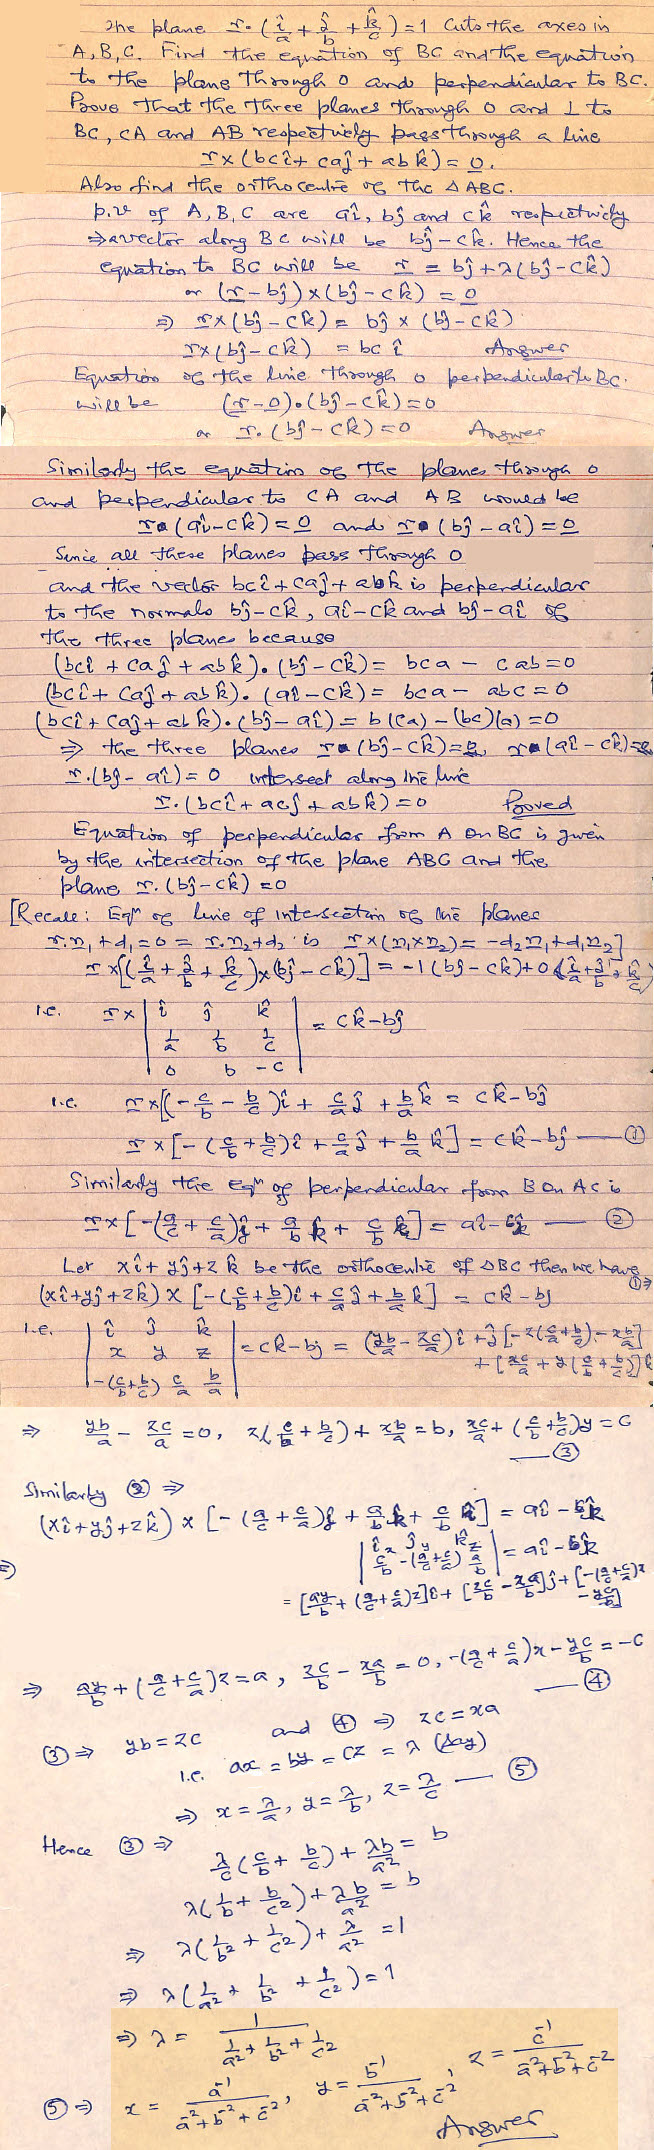 The plane r.(î/a + ĵ/b + k̂/c) = 1 cuts the axes in
A, B, C. Find the equation of BC and the equation
to the plane through O and perpendicular to BC.
Prove that the three planes through O and ⊥ to
BC, CA and AB respectively pass through a line
r×(bcî + caĵ + abk̂) = 0.
Also find the orthocentre of the ΔABC.
p.v of A, B, C are aî, bĵ and ck̂ respectively
⇒ a vector along BC will be bĵ - ck̂. Hence the
equation to BC will be r = bĵ + λ(bĵ - ck̂)
or (r - bĵ) × (bĵ - ck̂) = 0
⇒ r×(bĵ - ck̂) = bĵ × (bĵ - ck̂)
r×(bĵ - ck̂) = bc î Answer
Equation of the line through O perpendicular to BC.
will be (r - 0).(bĵ - ck̂) = 0
or r.(bĵ - ck̂) = 0 Answer
Similarly the equation of the planes through O
and perpendicular to CA and AB would be
r.(aî - ck̂) = 0 and r.(bĵ - aî) = 0
Since all these planes pass through O
and the vector bcî + caĵ + abk̂ is perpendicular
to the normals bĵ - ck̂, aî - ck̂ and bĵ - aî of
the three planes because
(bcî + caĵ + abk̂).(bĵ - ck̂) = bca - cab = 0
(bcî + caĵ + abk̂).(aî - ck̂) = bca - abc = 0
(bcî + caĵ + abk̂).(bĵ - aî) = b(ca) - (bc)(a) = 0
⇒ the three planes r.(bĵ - ck̂) = 0, r.(aî - ck̂) = 0
r.(bĵ - aî) = 0 intersect along the line
r.(bcî + acĵ + abk̂) = 0 Proved
Equation of perpendicular from A on BC is given
by the intersection of the plane ABC and the
plane r.(bĵ - ck̂) = 0
[Recall: Eqn of line of intersection of the planes
r.n₁ + d₁ = 0 = r.n₂ + d₂ is r×(n₁×n₂) = -d₂n₁ + d₁n₂]
r×[(î/a + ĵ/b + k̂/c)×(bĵ - ck̂)] = -1(bĵ - ck̂) + 0(î/a + ĵ/b + k̂/c)
i.e. r× | î ĵ k̂ |
| 1/a 1/b 1/c | = ck̂ - bĵ
| 0 b -c |
i.e. r×[(-c/b - b/c)î + c/a ĵ + b/a k̂ = ck̂ - bĵ
r×[-(c/b + b/c)î + c/a ĵ + b/a k̂] = ck̂ - bĵ — ①
Similarly the eqn of perpendicular from B on AC is
r×[-(a/c + c/a)ĵ + a/b k̂ + c/b î] = aî - ck̂ — ②
Let xî + yĵ + zk̂ be the orthocentre of ΔBC then we have ① ⇒
(xî + yĵ + zk̂) × [-(c/b + b/c)î + c/a ĵ + b/a k̂] = ck̂ - bĵ
i.e. | î ĵ k̂ |
| x y z | = ck̂ - bĵ = (yb/a - zc/a)î + ĵ[-z(c/b + b/c) - xb/a]
| -(c/b + b/c) c/a b/a | + [xc/a + y(c/b + b/c)]k̂
⇒ yb/a - zc/a = 0, z(c/b + b/c) + xb/a = b, xc/a + (c/b + b/c)y = c
— ③
Similarly ② ⇒
(xî + yĵ + zk̂) × [-(a/c + c/a)ĵ + a/b k̂ + c/b î] = aî - ck̂
⇒ | î ĵ k̂ |
| x y z |
| c/b -(a/c + c/a) a/b | = aî - ck̂
= [ay/b + (a/c + c/a)z]î + [zc/b - xa/b]ĵ + [-(a/c + c/a)x
- yc/b]
⇒ ay/b + (a/c + c/a)z = a, zc/b - xa/b = 0, -(a/c + c/a)x - yc/b = -c
— ④
③ ⇒ yb = zc and ④ ⇒ zc = xa
i.e. ax = by = cz = λ (say)
⇒ x = λ/a, y = λ/b, z = λ/c — ⑤
Hence ③ ⇒ λ/c (c/b + b/c) + λb/a² = b
λ(1/b + b/c²) + λb/a² = b
⇒ λ(1/b² + 1/c²) + λ/a² = 1
⇒ λ(1/a² + 1/b² + 1/c²) = 1
⇒ λ = 1/(1/a² + 1/b² + 1/c²)
⑤ ⇒ x = a⁻¹/(a⁻² + b⁻² + c⁻²), y = b⁻¹/(a⁻² + b⁻² + c⁻²), z = c⁻¹/(a⁻² + b⁻² + c⁻²)
Answer